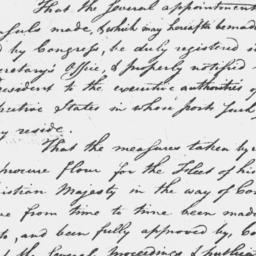 That the several appointment
nsuls made, & which may hereafter be made
d by Congress, be duly registered i
cretary's Office, & properly notified
resident to the executive authorities o
pective States in whose ports such
y reside.
That the measures taken by
procure flour for the Fleet of his
istian Majesty in the way of Con
ve from time to time been made
to, and been fully approved by, Co
the several Proceedings & publicat